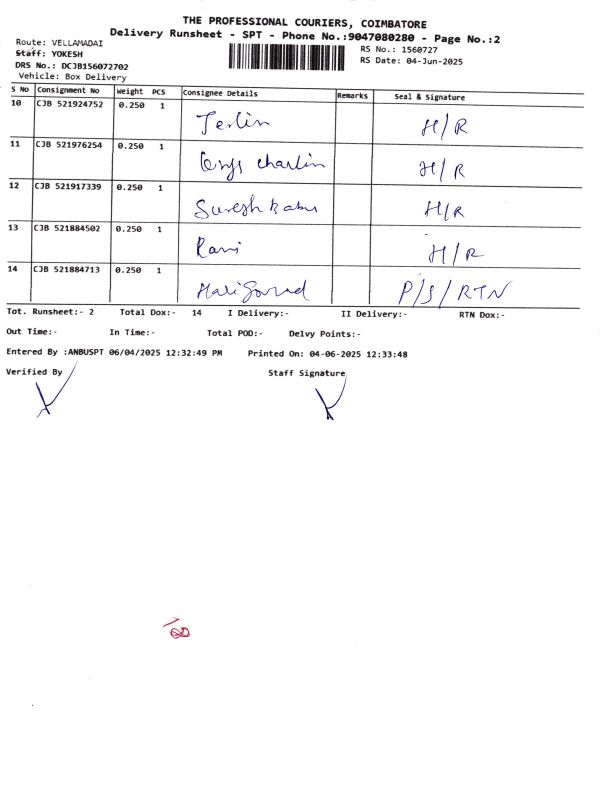 THE PROFESSIONAL COURIERS, COIMBATORE
Delivery Runsheet - SPT - Phone No.:9047080280 - Page No.:2
Route: VELLAMADAI
Staff: YOKESH
DRS No.: DCJB156072702
Vehicle: Box Delivery
RS No.: 1560727
RS Date: 04-Jun-2025
S No Consignment No Weight PCS Consignee Details Remarks Seal & Signature
10 CJB 521924752 0.250 1 Jerlin H/R
11 CJB 521976254 0.250 1 charlin H/R
12 CJB 521917339 0.250 1 Suresh babu H/R
13 CJB 521884502 0.250 1 Ravi H/R
14 CJB 521884713 0.250 1 P/S/RTN
Tot. Runsheet:- 2 Total Dox:- 14 I Delivery:- II Delivery:- RTN Dox:-
Out Time:- In Time:- Total POD:- Delvy Points:-
Entered By :ANBUSPT 06/04/2025 12:32:49 PM Printed On: 04-06-2025 12:33:48
Verified By Staff Signature